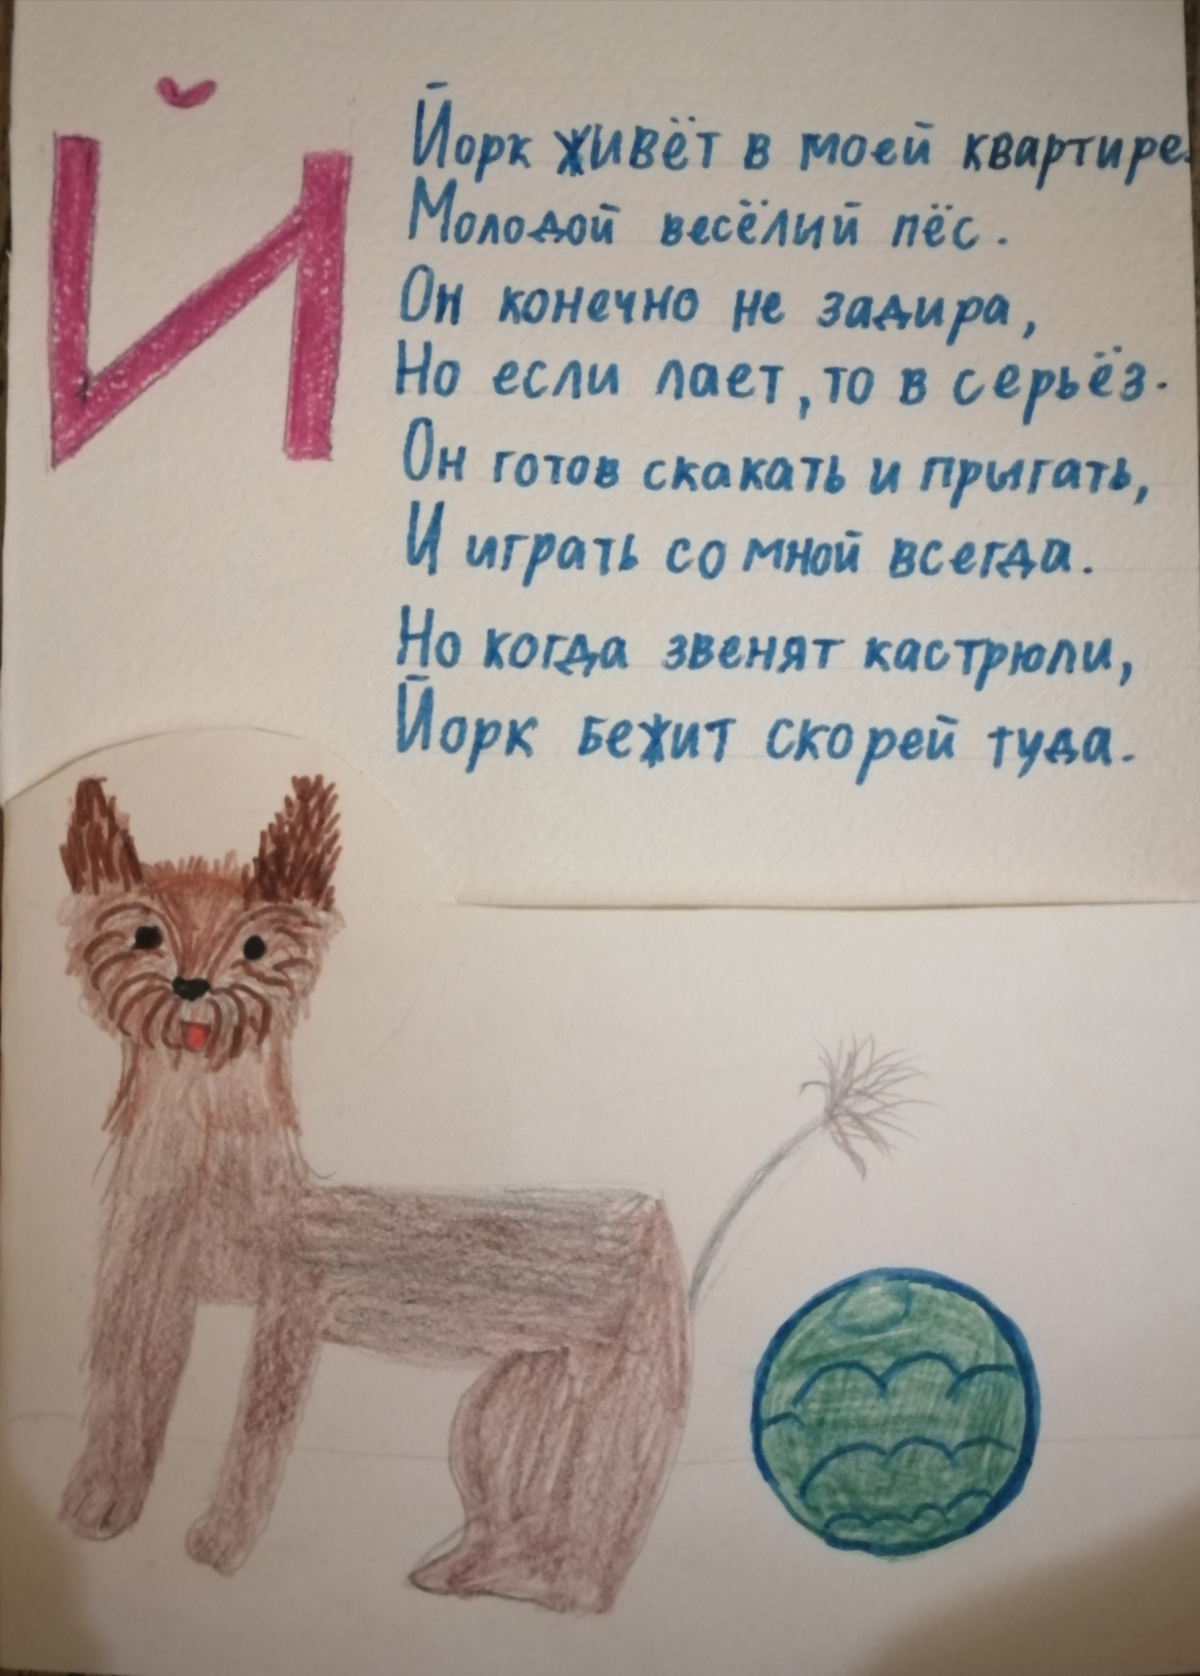 Й
Йорк живёт в моей квартире.
Молодой весёлий пёс.
Он конечно не задира,
Но если лает, то в серьёз.
Он готов скакать и прыгать,
И играть со мной всегда.
Но когда звенят кастрюли,
Йорк бежит скорей туда.